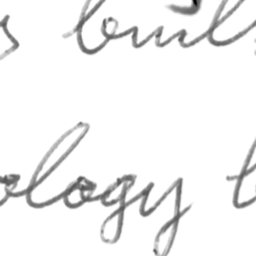 s buil
ology b